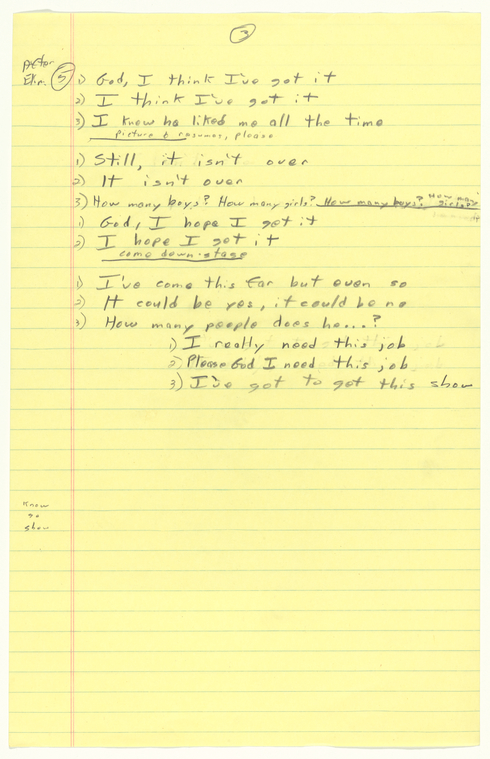 3
after
Elim. 5 1) God, I think I've got it
2) I think I've got it
3) I knew he liked me all the time
picture & resumes, please
1) Still, it isn't over
2) It isn't over
3) How many boys? How many girls? How many boys? How many girls?
1) God, I hope I get it
2) I hope I get it
come down-stage
1) I've come this far but even so
2) It could be yes, it could be no
3) How many people does he...?
1) I really need this job
2) Please God I need this job
3) I've got to get this show
Know
so
show